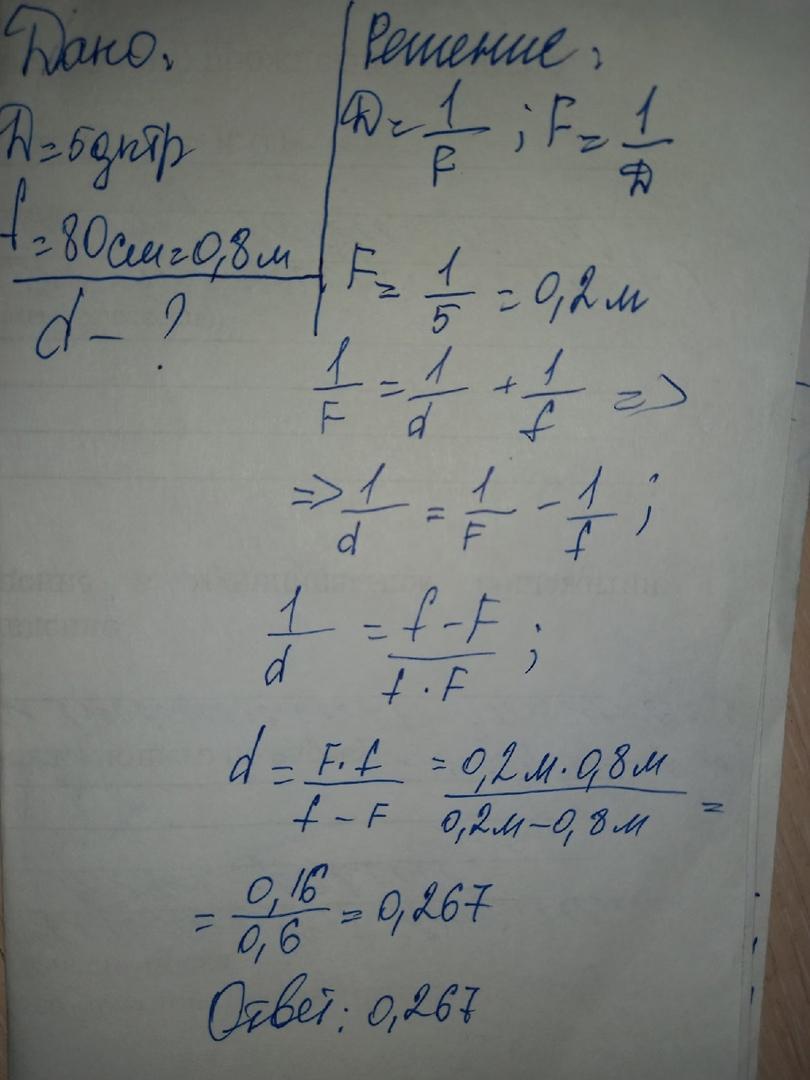 Дано:
D=5дптр
f=80см=0,8м
d-?
Решение:
D=1/F; F=1/D
F=1/5=0,2м
1/F=1/d+1/f =>
=>1/d=1/F-1/f;
1/d=f-F/f·F;
d=F·f/f-F=0,2м·0,8м/0,2м-0,8м=
=0,16/0,6=0,267
Ответ: 0,267